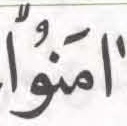 اٰمَنُوْا